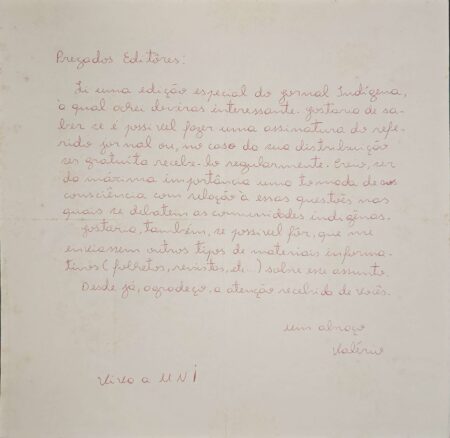 Prezados Editôres:
Li uma edição especial do jornal Indígena,
o qual achei deveras interessante. gostaria de sa-
ber se é possível fazer uma assinatura do refe-
rido jornal ou, no caso da sua distribuição
ser gratuita recebê-lo regularmente. Creio, ser
da máxima importância uma tomada de cons
consciência com relação à essas questões nas
quais se debatem as comunidades indígenas.
gostaria, também, se possível fôr, que me
enviassem outros tipos de materiais informa-
tivos (folhetos, revistas, etc..) sobre esse assunto.
Desde já, agradeço, a atenção recebida de vocês.
um abraço
Valério
Viva a UNI